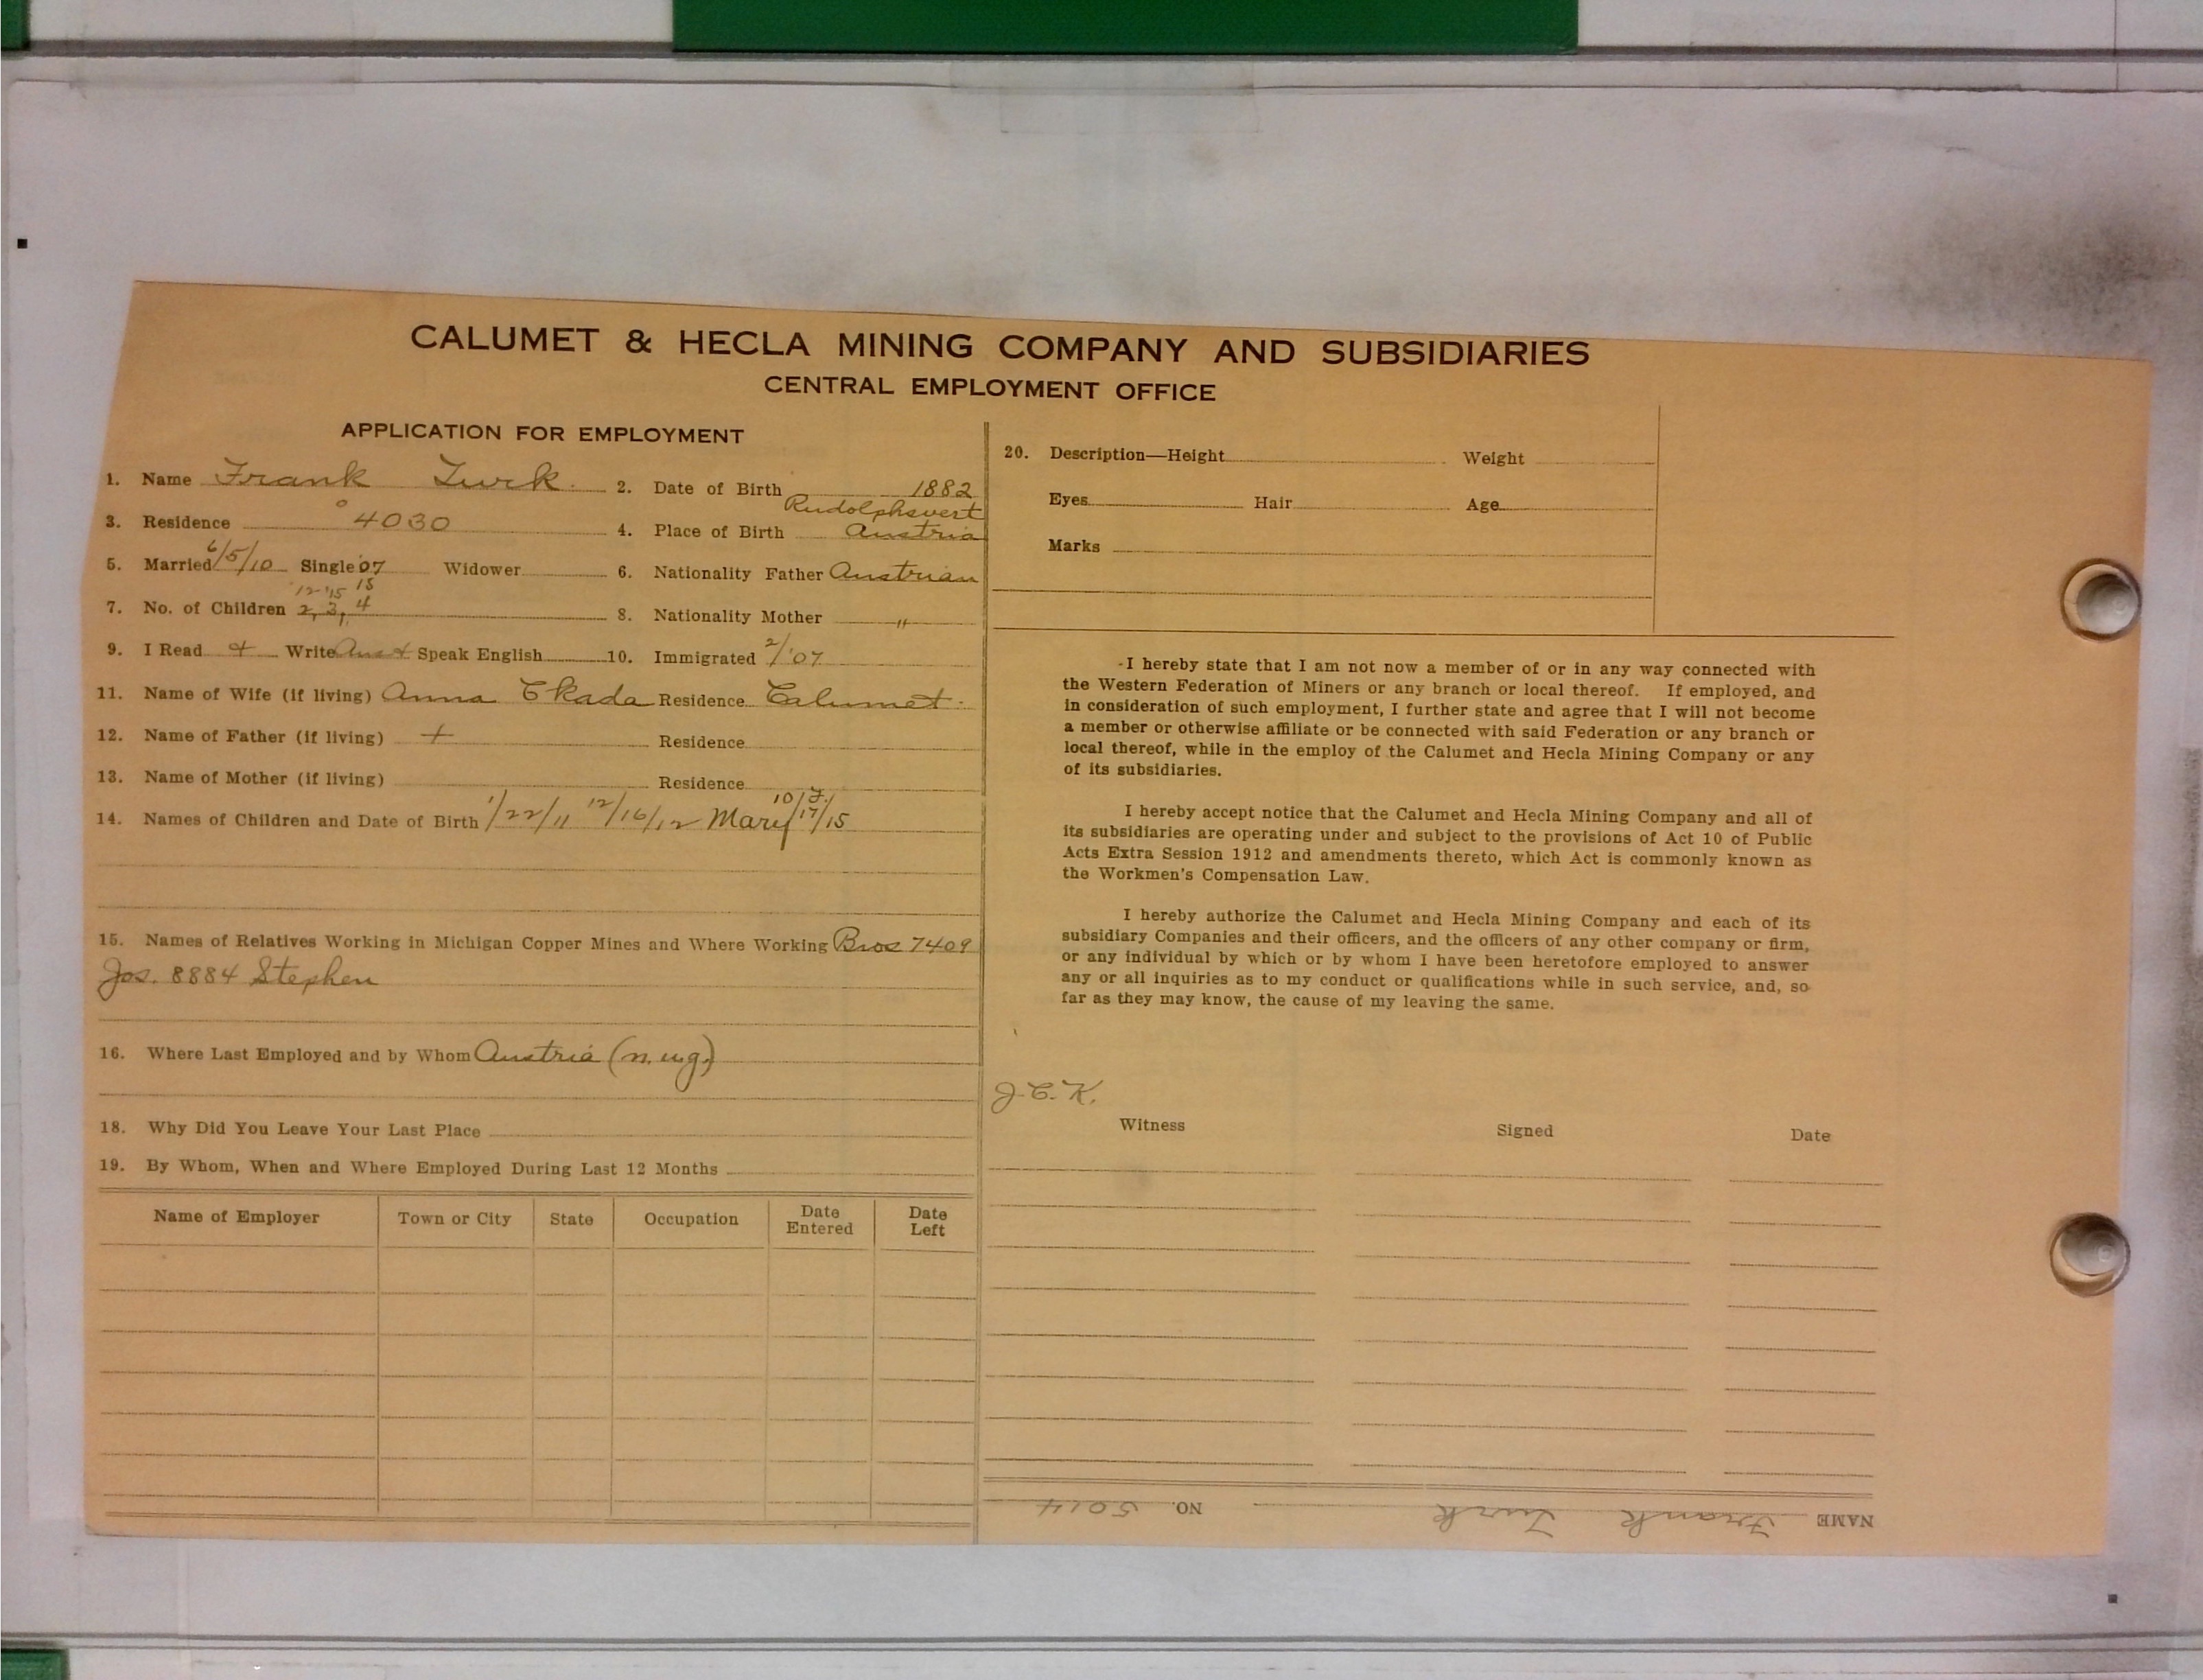 CALUMET & HECLA MINING COMPANY AND SUBSIDIARIES
CENTRAL EMPLOYMENT OFFICE
APPLICATION FOR EMPLOYMENT
1. Name Frank Turk. 2. Date of Birth 1882
3. Residence 4030 4. Place of Birth Rudolphsvert Austria
5. Married 6/5/10 Single '07 Widower 6. Nationality Father Austrian
'12 '15 18
7. No. of Children 2, 3, 4 8. Nationality Mother "
9. I Read + Write Aust Speak English 10. Immigrated 2/'07
11. Name of Wife (if living) Anna Residence Calumet.
12. Name of Father (if living) + Residence
13. Name of Mother (if living) Residence
14. Names of Children and Date of Birth 1/22/11 12/16/12 Mary 10/17/15
15. Names of Relatives Working in Michigan Copper Mines and Where Working Bros 7409
Jos. 8884 Stephen
16. Where Last Employed and by Whom Austria
18. Why Did You Leave Your Last Place
19. By Whom, When and Where Employed During Last 12 Months
Name of Employer Town or City State Occupation Date Entered Date Left
20. Description—Height Weight
Eyes Hair Age
Marks
I hereby state that I am not now a member of or in any way connected with
the Western Federation of Miners or any branch or local thereof. If employed, and
in consideration of such employment, I further state and agree that I will not become
a member or otherwise affiliate or be connected with said Federation or any branch or
local thereof, while in the employ of the Calumet and Hecla Mining Company or any
of its subsidiaries.
I hereby accept notice that the Calumet and Hecla Mining Company and all of
its subsidiaries are operating under and subject to the provisions of Act 10 of Public
Acts Extra Session 1912 and amendments thereto, which Act is commonly known as
the Workmen's Compensation Law.
I hereby authorize the Calumet and Hecla Mining Company and each of its
subsidiary Companies and their officers, and the officers of any other company or firm,
or any individual by which or by whom I have been heretofore employed to answer
any or all inquiries as to my conduct or qualifications while in such service, and, so
far as they may know, the cause of my leaving the same.
J.C.K.
Witness Signed Date
NAME Frank Turk NO. 5014